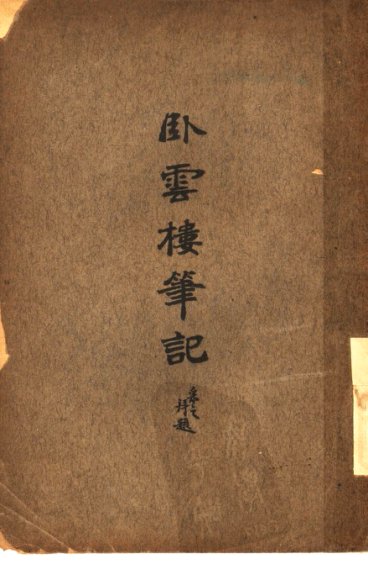 臥雲樓筆記
拜題